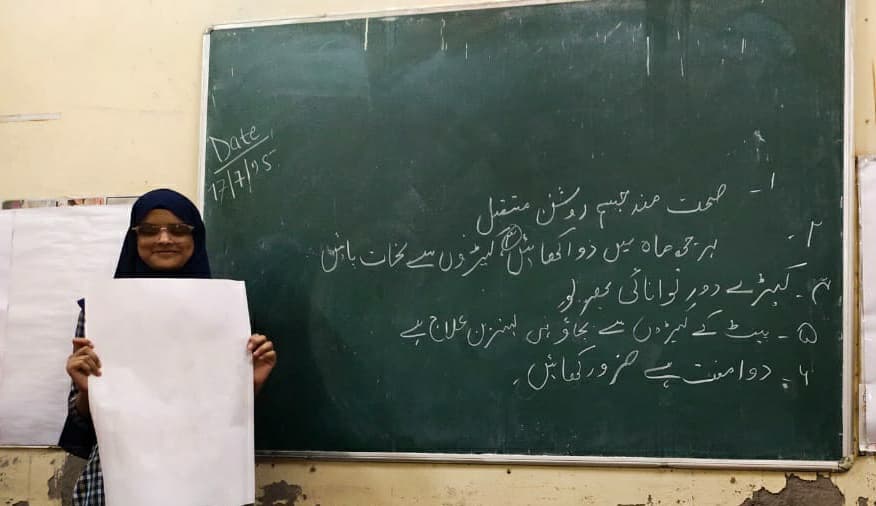 Date,
17/7/25
۱۔ صحت مند جسم روشن مستقبل
۲۔ ہر چھ ماہ میں دوا کھائیں کیڑوں سے نجات پائیں
۳۔ کیڑے دور توانائی بھرپور
۵۔ پیٹ کے کیڑوں سے بچاؤ ہی بہترین علاج ہے
۶۔ دوا مفت ہے ضرور کھائیں۔